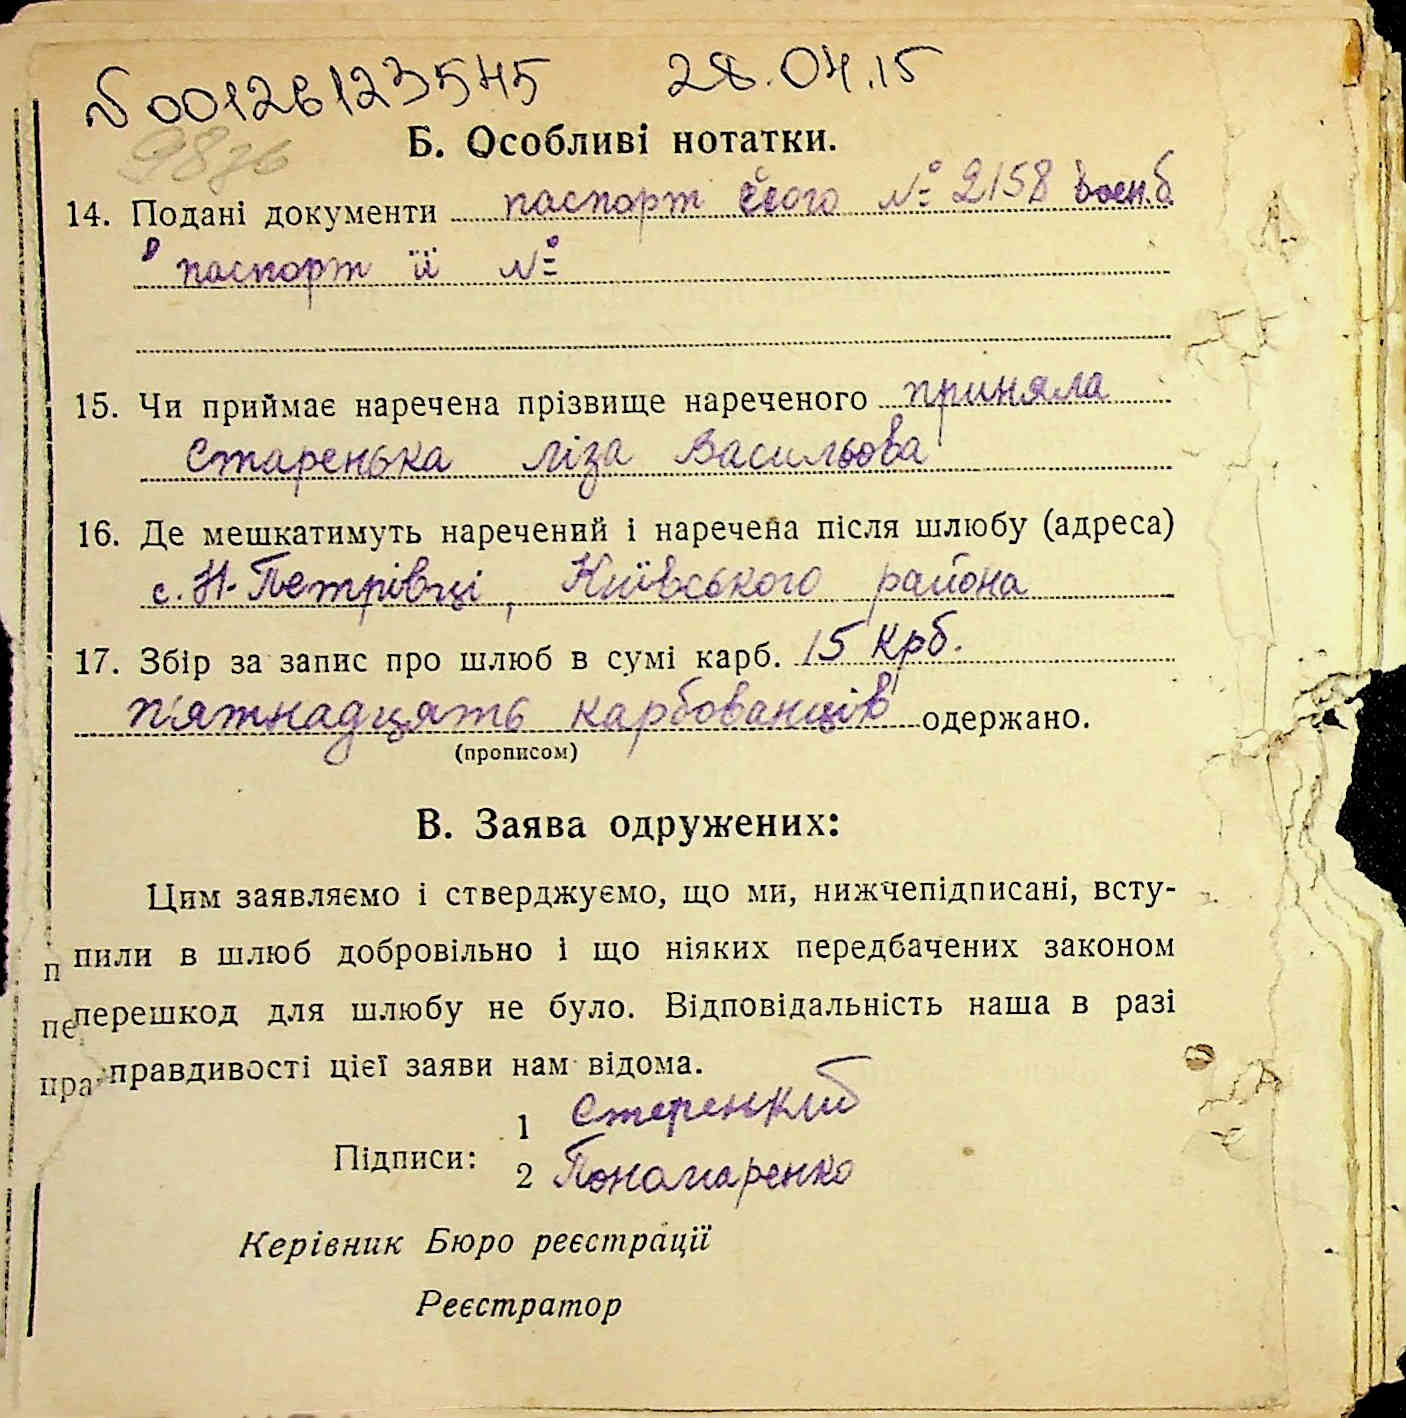 № 00126123545 28.04.15
Б. Особливі нотатки.
14. Подані документи паспорт його № 2158 воен.б
паспорт її №
15. Чи приймає наречена прізвище нареченого приняла
Старенька Ліза Васильова
16. Де мешкатимуть наречений і наречена після шлюбу (адреса)
с. Н-Петрівці, Київського района
17. Збір за запис про шлюб в сумі карб. 15 крб.
п'ятнадцять карбованців одержано.
(прописом)
В. Заява одружених:
Цим заявляємо і стверджуємо, що ми, нижчепідписані, всту-
п пили в шлюб добровільно і що ніяких передбачених законом
пе перешкод для шлюбу не було. Відповідальність наша в разі
пра правдивості цієї заяви нам відома.
1 Стеренкий
Підписи:
2 Пономаренко
Керівник Бюро реєстрації
Реєстратор